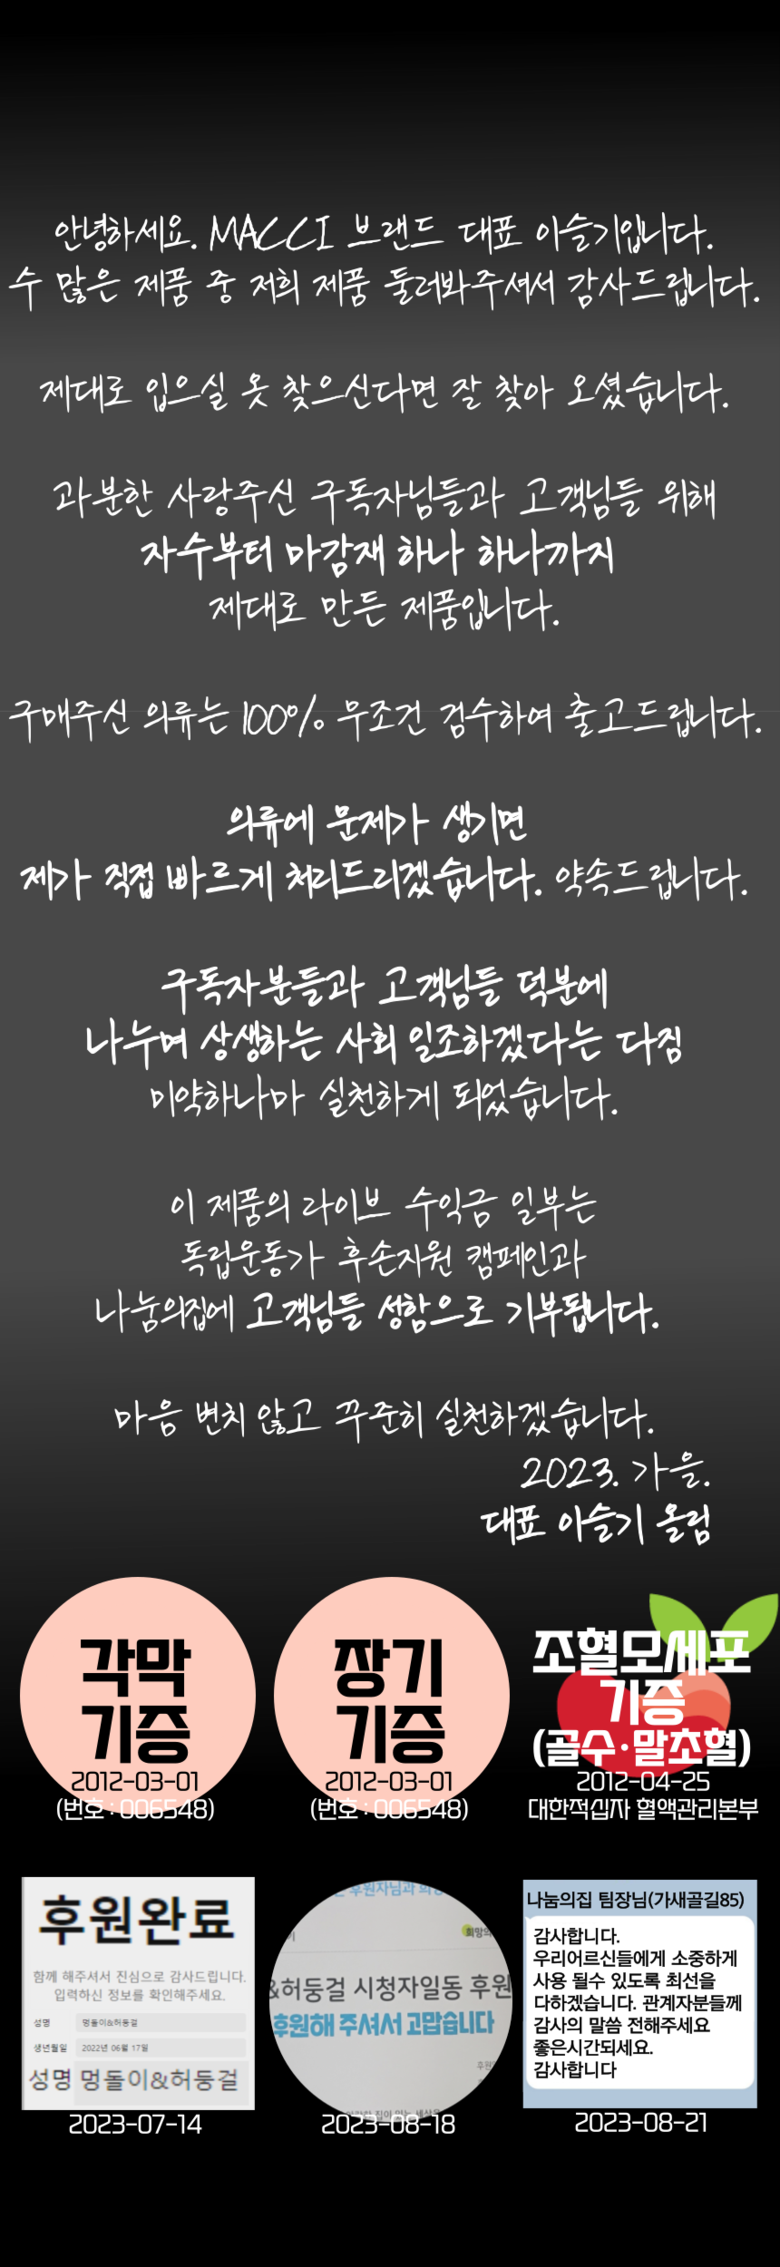 안녕하세요. MACCI 브랜드 대표 이슬기입니다.
수 많은 제품 중 저희 제품 둘러봐주셔서 감사드립니다.
제대로 입으실 옷 찾으신다면 잘 찾아 오셨습니다.
과분한 사랑주신 구독자님들과 고객님들 위해
자수부터 마감재 하나 하나까지
제대로 만든 제품입니다.
구매주신 의류는 100% 무조건 검수하여 출고드립니다.
의류에 문제가 생기면
제가 직접 빠르게 처리드리겠습니다. 약속드립니다.
구독자분들과 고객님들 덕분에
나누며 상생하는 사회 일조하겠다는 다짐
미약하나마 실천하게 되었습니다.
이 제품의 라이브 수익금 일부는
독립운동가 후손지원 캠페인과
나눔의집에 고객님들 성함으로 기부됩니다.
마음 변치 않고 꾸준히 실천하겠습니다.
2023. 가을.
대표 이슬기 올림
각막
기증
2012-03-01
(번호 : 006548)
장기
기증
2012-03-01
(번호 : 006548)
조혈모세포
기증
(골수·말초혈)
2012-04-25
대한적십자 혈액관리본부
후원완료
함께 해주셔서 진심으로 감사드립니다.
입력하신 정보를 확인해주세요.
성명 멍돌이&허둥걸
생년월일 2022년 06월 17일
성명 멍돌이&허둥걸
2023-07-14
후원자님과
희망의
&허둥걸 시청자일동 후원
후원해 주셔서 고맙습니다
2023-08-18
나눔의집 팀장님(가새골길85)
감사합니다.
우리어르신들에게 소중하게
사용 될수 있도록 최선을
다하겠습니다. 관계자분들께
감사의 말씀 전해주세요
좋은시간되세요.
감사합니다
2023-08-21